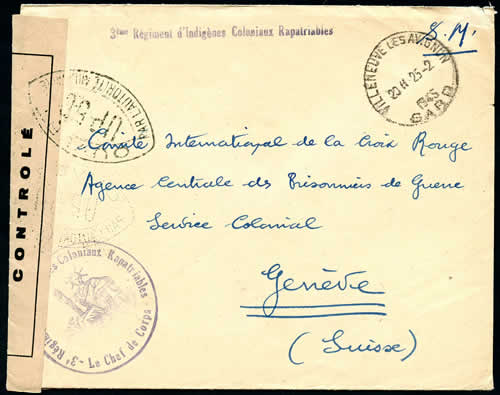 3ème Régiment d'Indigènes Coloniaux Rapatriables
S.M.
VILLENEUVE LES AVIGNON
20 H 25-2
1945
GARD
PAR L'AUTORITÉ
OUVERT
Comité International de la Croix Rouge
Agence Centrale des Prisonniers de Guerre
Service Colonial
Genève
(Suisse)
CONTROLÉ
es Coloniaux Rapatriables
3e Régi
- Le Chef de Corps -